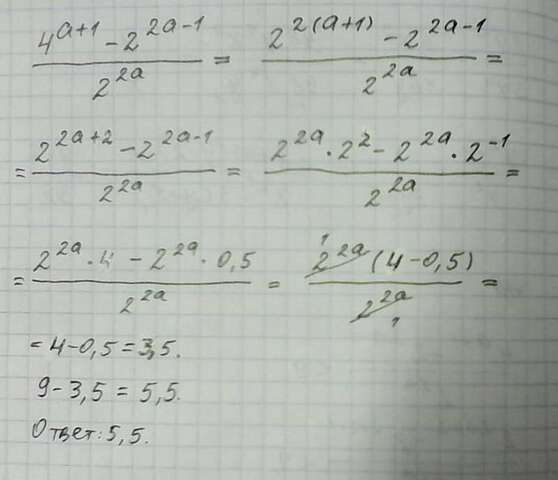 \frac{4^{a+1} - 2^{2a-1}}{2^{2a}} = \frac{2^{2(a+1)} - 2^{2a-1}}{2^{2a}} =
= \frac{2^{2a+2} - 2^{2a-1}}{2^{2a}} = \frac{2^{2a} \cdot 2^2 - 2^{2a} \cdot 2^{-1}}{2^{2a}} =
= \frac{2^{2a} \cdot 4 - 2^{2a} \cdot 0,5}{2^{2a}} = \frac{\cancel{2^{2a}}^1 (4 - 0,5)}{\cancel{2^{2a}}_1} =
= 4 - 0,5 = 3,5.
9 - 3,5 = 5,5.
Ответ: 5,5.